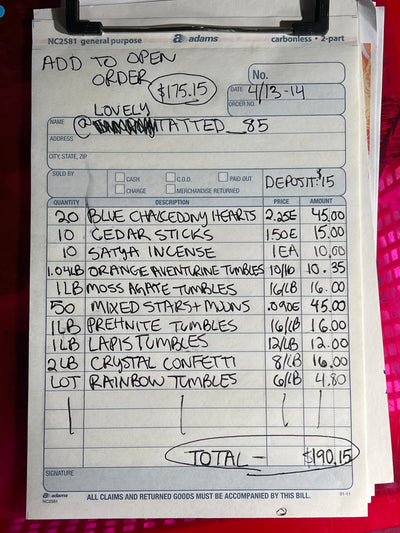 NC2581 general purpose adams carbonless • 2-part
ADD TO OPEN
ORDER $175.15
No.
DATE 4/13-14
ORDER NO.
LOVELY
NAME @ TATTED_85
ADDRESS
CITY, STATE, ZIP
SOLD BY CASH C.O.D. PAID OUT DEPOSIT: $15
CHARGE MERCHANDISE RETURNED
QUANTITY DESCRIPTION PRICE AMOUNT
20 BLUE CHALCEDONY HEARTS 2.25E 45.00
10 CEDAR STICKS 1.50E 15.00
10 SATYA INCENSE 1EA 10.00
1.04LB ORANGE AVENTURINE TUMBLES 10/lb 10.35
1LB MOSS AGATE TUMBLES 16/LB 16.00
50 MIXED STARS + MOONS .090E 45.00
1LB PREHNITE TUMBLES 16/LB 16.00
1LB LAPIS TUMBLES 12/LB 12.00
2LB CRYSTAL CONFETTI 8/LB 16.00
LOT RAINBOW TUMBLES 6/LB 4.80
TOTAL - $190.15
SIGNATURE
adams ALL CLAIMS AND RETURNED GOODS MUST BE ACCOMPANIED BY THIS BILL. 01-11
NC2581